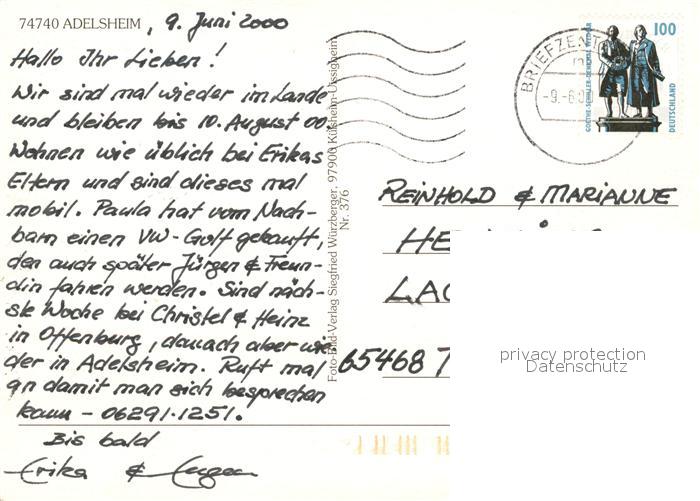 74740 ADELSHEIM , 9. Juni 2000
Hallo Ihr Lieben !
Wir sind mal wieder im Lande
und bleiben bis 10. August 00.
Wohnen wie üblich bei Erikas
Eltern und sind dieses mal
mobil. Paula hat vom Nach-
barn einen VW-Golf gekauft,
den auch später Jürgen & Freun-
din fahren werden. Sind näch-
ste Woche bei Christel & Heinz
in Offenburg, danach aber wie-
der in Adelsheim. Ruft mal
an damit man sich besprechen
kann - 06291-1251.
Bis bald
Erika & Eugen
Foto-Bild-Verlag Siegfried Würzberger, 97900 Külsheim-Uissigheim
Nr. 376
BRIEFZENT
-9.-6.0
GOETHE-SCHILLER-DENKMAL WEIMAR
100
DEUTSCHLAND
REINHOLD & MARIANNE
HE
LA
65468 T
privacy protection
Datenschutz